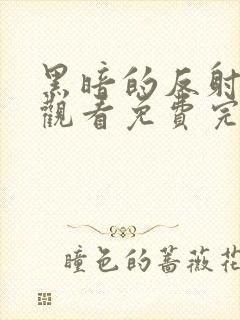 黑暗的反射
觀看免費完
瞳色的薔薇花